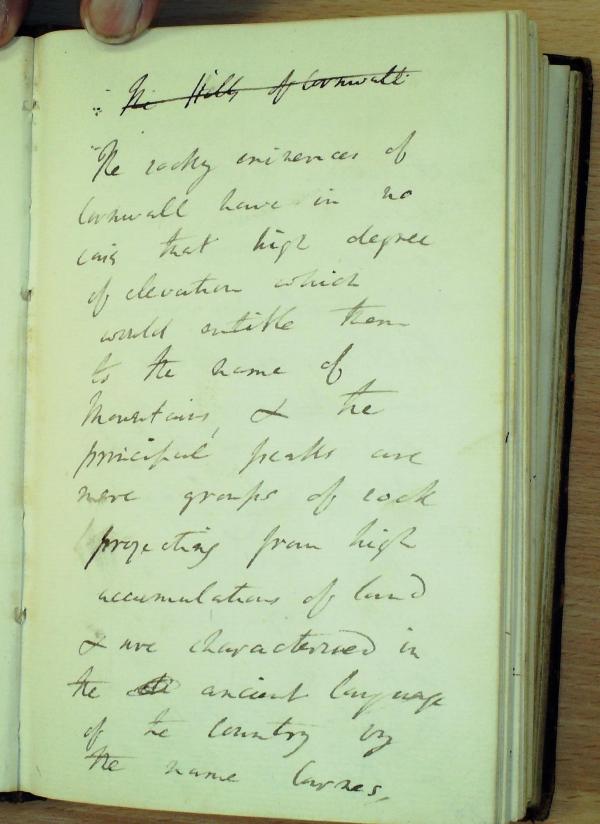 The Hills of Cornwall
The rocky eminences of
Cornwall have in no
case that high degree
of elevation which
would entitle them
to the name of
Mountains, & the
principal peaks are
mere groups of rock
projecting from high
accumulations of land
& are characterised in
the ancient language
of the Country by
the name Carnes,